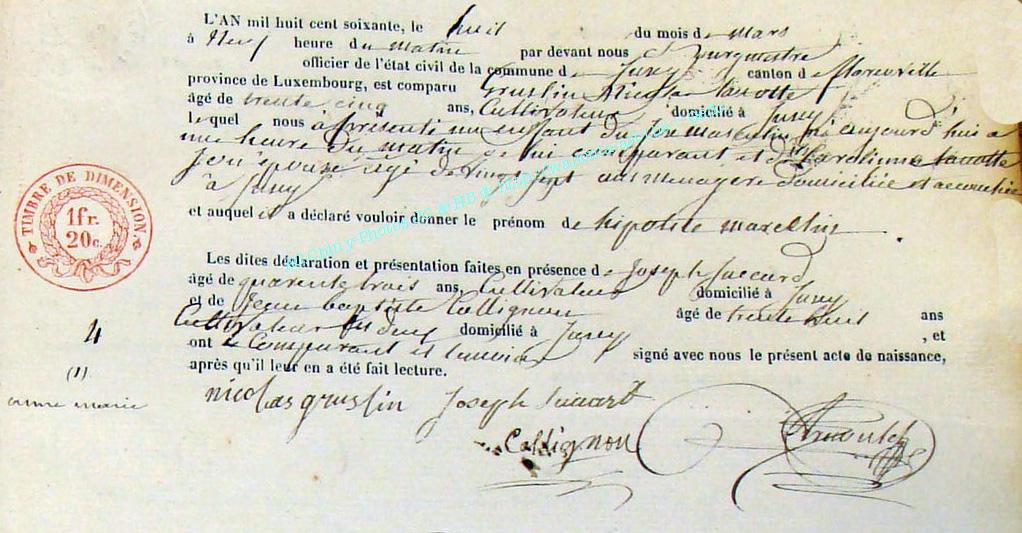 L'AN mil huit cent soixante, le huit du mois de mars
à Neuf heure du matin par devant nous Bourgmestre
officier de l'état civil de la commune de Juny canton de florenville
province de Luxembourg, est comparu gruslin Nicolas
âgé de trente cinq ans, Cultivateur domicilié à Juny
lequel nous a présenté un enfant du sexe masculin né aujourd'hui à
une heure du matin de lui comparant et de
son épouse âgé de vingt sept ans menagere domiciliée et accouchée
à Juny
et auquel il a déclaré vouloir donner le prénom de hipolite maxellin.
Les dites déclaration et présentation faites en présence de Joseph
âgé de quarente trois ans, Cultivateur domicilié à Juny
et de Jean baptiste Collignon âgé de trente huit ans
Cultivateur domicilié à Juny, et
ont le Comparant et temoins signé avec nous le présent acte de naissance,
après qu'il leur en a été fait lecture.
nicolas gruslin Joseph
Collignon
TIMBRE DE DIMENSION.
1 fr.
20 c.
4
(1)
anne marie